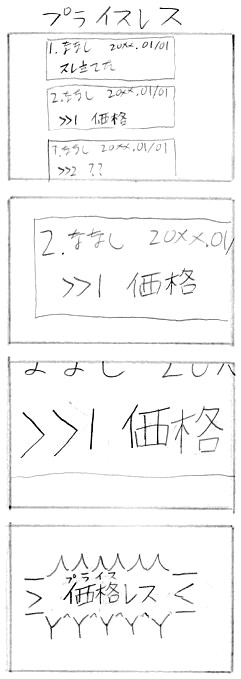 プライスレス
1.ななし 20xx.01/01
スレ立てた
2.ななし 20xx.01/01
>>1 価格
7.ななし 20xx.01/01
>>2 ??
2.ななし 20xx.01/
>>1 価格
ななし 20x
>>1 価格
プライス
価格レス